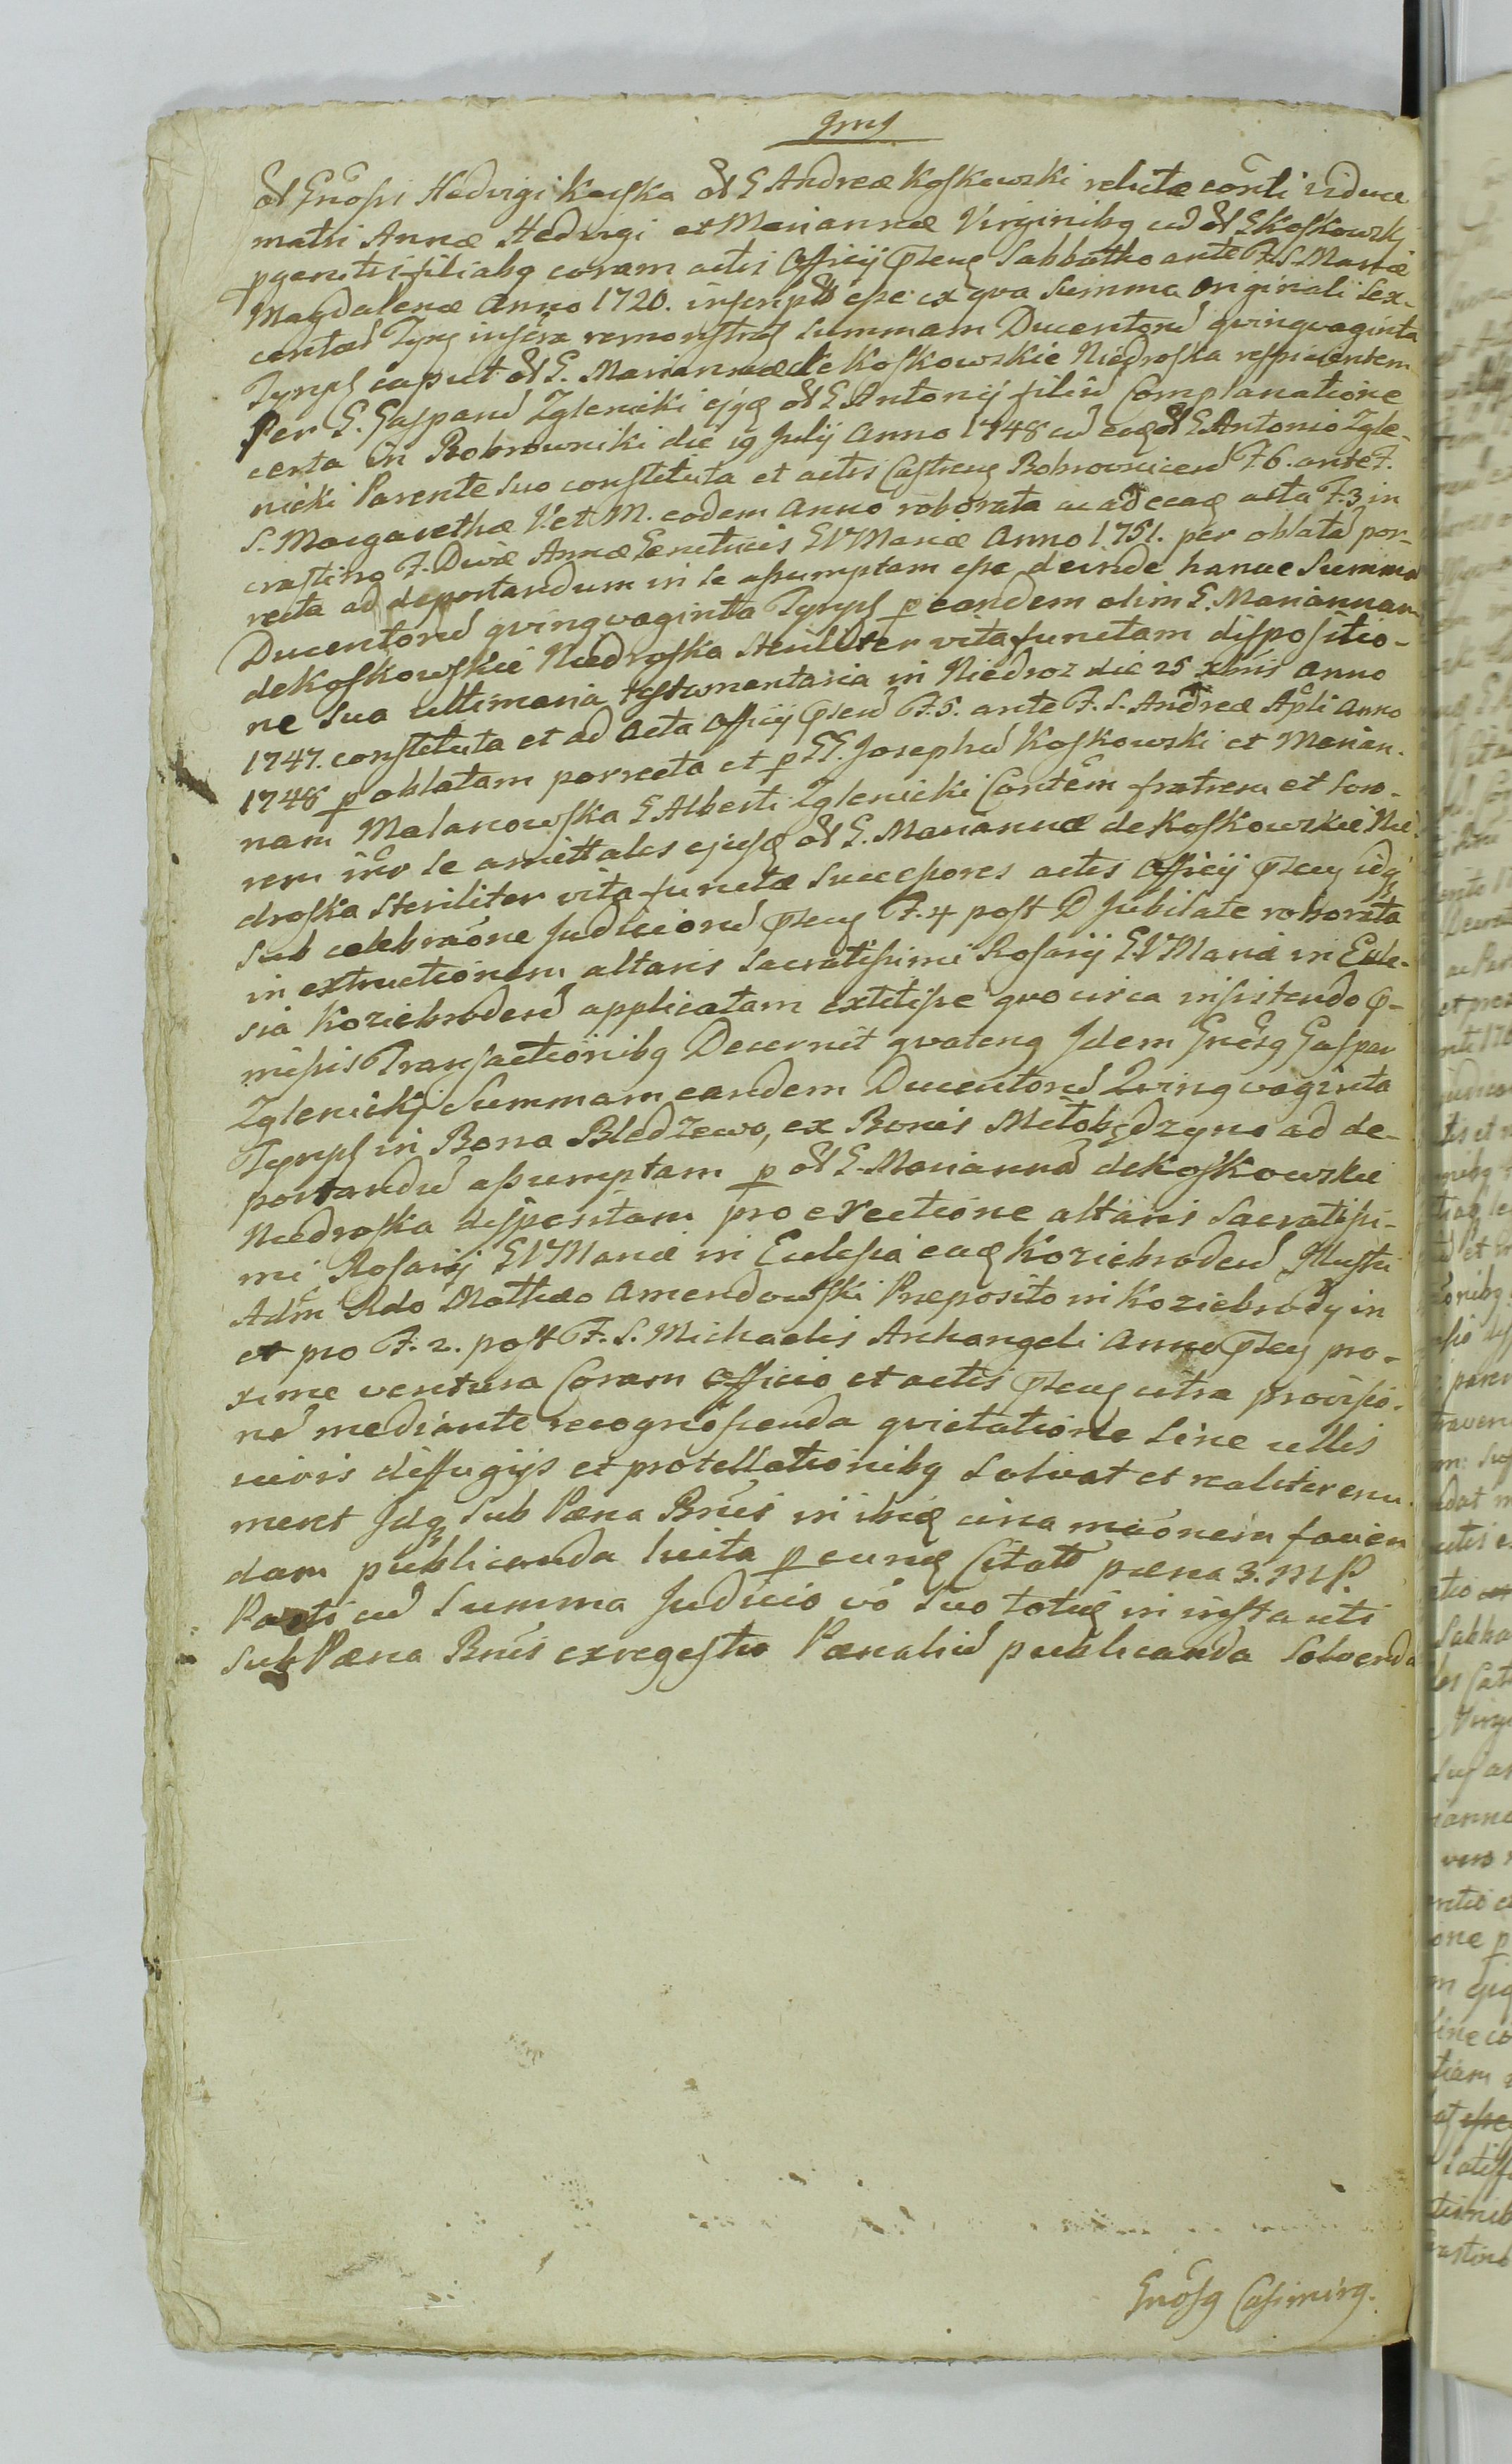 Gnosi Hedvigi Kęsska G Andreæ Koskowski relictæ conli viduæ
matri Annæ Hedvigi et Mariannæ Virginibq cu G Koskowski
pgenitis filiabq coram actis Officij pscnq Sabbatho ante F. S. Mariæ
Magdalenæ Anno 1720. inscript esse ex qva Summa Originali Sex-
centor Tynf infera remonstras Summam Ducentoru qvinqvaginta
Tynph caput G. Mariannæ de Koskowskie Niedroska respicientem
Per G. Gaspard Zglenicki ejqd G Antonij filiu Complanatione
certa in Bobrowniki die 19 Julij Anno 1748 cu G Antonio Zgle-
nicki Parente Suo constituta et actis Castrens Bobrovnicens F. 6. ante F.
S. Margarethæ V. et M. eodem Anno roborata ac ad acta F. 3 in
crastino F. Divæ Annæ Genitricis BVMariæ Anno 1751. per oblatā por-
recta ad deportandum in se assumptam esse deinde hancce Summā
Ducentoru qvinqvaginta Tynph p eandem olim G. Mariannam
de Koskowskie Niedroska Steriliter vita functam dispositio-
ne sua ultimaria testamentaria in Niedroz die 25 xbris anno
1747. constituta et ad Acta Officij pscns F. 5. ante F. S. Andreæ Apli Anno
1748 p oblatam porrecta et p GG. Josephu Koskowski et Marian-
nam Malanowska G Alberti Zglenicki Contēm fratrem et Soro-
rem inr se amittales ejusq G. Mariannæ de Koskowskie Nie-
droska Steriliter vita functæ Successores actis Officij pscnq idq
Sub celebraōne Judiciorū pscnq F. 4 post D Jubilate roborata
in extructionem altaris Sacratissimi Rosarij BVMariæ in Eccle-
sia Koziebrodens applicatam extitisse qvocirca insistendo p-
missis Transactionibq Decernit qvatenq Idem Gnosq Gaspar
Zglenicki Summam eandem Ducentorū Qvinqvaginta
Tynph in Bona Bledzewo, ex Bonis Mełobędzyno ad de-
portandū assumptam p G. Mariannā de Koskowskie
Niedroska dispositam pro erectione altaris Sacratissi-
mi Rosarij BVMariæ in Eccleśia Koziebrodens Illustri
Adm Rdo Mathæo Amendowski Præposito in Koziebrody in
et pro F. 2. post F. S. Michaelis Archangeli Anno pscnq pro-
xime ventura Coram Officio et actis pscnq citra provisio-
nē mediante recognoscenda qvietatione Sine ullis
iuris diffugijs et protellationibq Solvat et realiter enu-
meret Idq Sub Pæna Bnis in circa facien
dam publicanda luita p eunq Citato pæna 3. M P.
Parti cū Summa Judicio vō Suo totiq in instanti
Sub Pæna Bnis ex regestro Pænaliū publicanda Solvenda
Gnosq Casimirq.